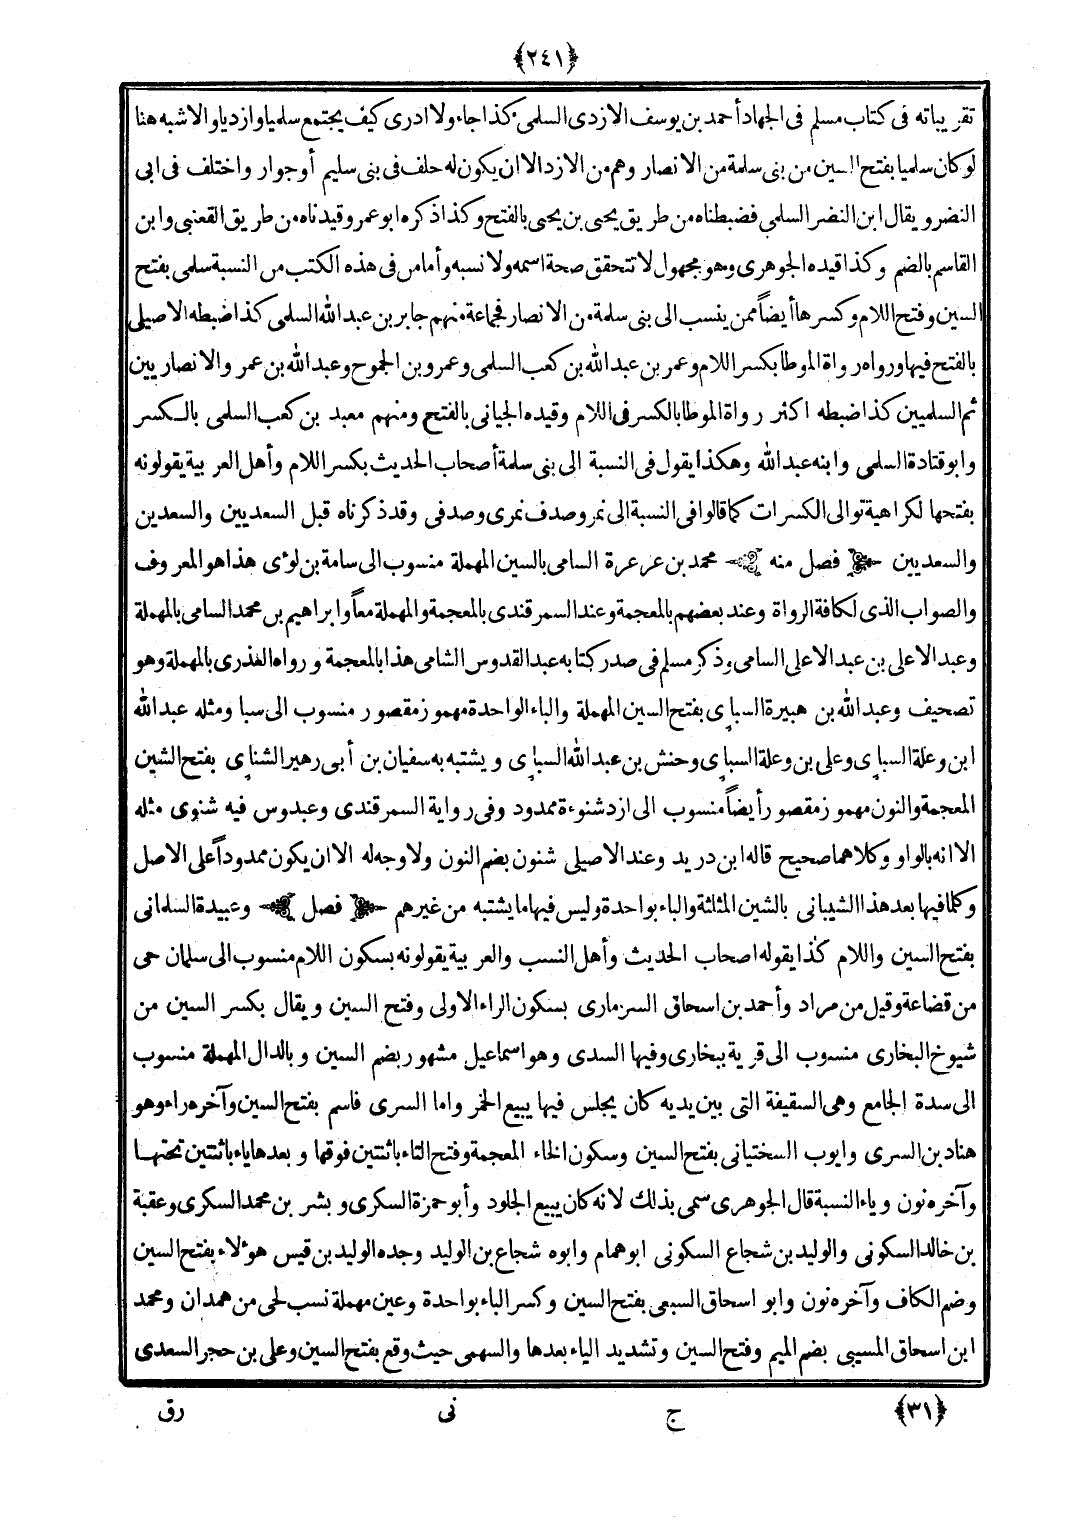 ﴿٢٤١﴾
تقريباته فى كتاب مسلم فى الجهاد أحمد بن يوسف الازدى السلمى كذا جاء ولا ادرى كيف يجتمع سلميا وازديا والاشبه هنا
لو كان سلميا بفتح السين من بنى سلمة من الانصار وهم من الازد الا ان يكون له حلف فى بنى سليم أوجوار واختلف فى ابى
النضر ويقال ابن النضر السلمى فضبطناه من طريق يحيى بن يحيى بالفتح وكذا ذكره ابو عمر وقيدناه من طريق القعنبى وابن
القاسم بالضم وكذا قيده الجوهرى وهو مجهول لا تتحقق صحة اسمه ولا نسبه وأما من فى هذه الكتب من النسبة سلمى بفتح
السين وفتح اللام وكسرها أيضاً ممن ينسب الى بنى سلمة من الانصار فجماعة منهم جابر بن عبد الله السلمى كذا ضبطه الاصيلى
بالفتح فيها ورواه رواة الموطا بكسر اللام وعمر بن عبد الله بن كعب السلمى وعمرو بن الجموح وعبد الله بن عمر والانصاريين
ثم السلميين كذا ضبطه اكثر رواة الموطا بالكسر فى اللام وقيده الجيانى بالفتح ومنهم معبد بن كعب السلمى بالكسر
وابو قتادة السلمى وابنه عبد الله وهكذا يقول فى النسبة الى بنى سلمة أصحاب الحديث بكسر اللام وأهل العربية يقولونه
بفتحها لكراهية توالى الكسرات كما قالوا فى النسبة الى نمر وصدف نمرى وصدفى وقد ذكرناه قبل السعديين والسعدين
والسعديين ﴿ فصل منه ﴾ محمد بن عرعرة السامى بالسين المهملة منسوب الى سامة بن لؤى هذا هو المعروف
والصواب الذى لكافة الرواة وعند بعضهم بالمعجمة وعند السمرقندى بالمعجمة والمهملة معاً وابراهيم بن محمد السامى بالمهملة
وعبد الاعلى بن عبد الاعلى السامى وذكر مسلم فى صدر كتابه عبد القدوس الشامى هذا بالمعجمة ورواه العذرى بالمهملة وهو
تصحيف وعبد الله بن هبيرة السباى بفتح السين المهملة والباء الواحدة مهموز مقصور منسوب الى سبا ومثله عبد الله
ابن وعلة السباى وعلى بن وعلة السباى وحنش بن عبد الله السباى ويشتبه به سفيان بن أبى زهير الشناى بفتح الشين
المعجمة والنون مهموز مقصور أيضاً منسوب الى ازد شنوءة ممدود وفى رواية السمرقندى وعبدوس فيه شنوى مثله
الا انه بالواو وكلاهما صحيح قاله ابن دريد وعند الاصيلى شنون بضم النون ولا وجه له الا ان يكون ممدوداً على الاصل
وكلما فيها بعد هذا الشيبانى بالشين المثلثة والباء بواحدة وليس فيها ما يشتبه من غيرهم ﴿ فصل ﴾ وعبيدة السلمانى
بفتح السين واللام كذا يقوله اصحاب الحديث وأهل النسب والعربية يقولونه بسكون اللام منسوب الى سلمان حى
من قضاعة وقيل من مراد وأحمد بن اسحاق السرمارى بسكون الراء الاولى وفتح السين ويقال بكسر السين من
شيوخ البخارى منسوب الى قرية ببخارى وفيها السدى وهو اسماعيل مشهور بضم السين وبالدال المهملة منسوب
الى سدة الجامع وهى السقيفة التى بين يديه كان يجلس فيها يبيع الخمر واما السرى فاسم بفتح السين وآخره راء وهو
هناد بن السرى وايوب السختيانى بفتح السين وسكون الخاء المعجمة وفتح التاء باثنتين فوقها وبعدها ياء باثنتين تحتها
وآخره نون وياء النسبة قال الجوهرى سمى بذلك لانه كان يبيع الجلود وأبو حمزة السكرى وبشر بن محمد السكرى وعقبة
بن خالد السكونى والوليد بن شجاع السكونى ابو همام وابوه شجاع بن الوليد وجده الوليد بن قيس هؤلاء بفتح السين
وضم الكاف وآخره نون وابو اسحاق السبيعى بفتح السين وكسر الباء بواحدة وعين مهملة نسب لحى من همدان ومحمد
ابن اسحاق المسيبى بضم الميم وفتح السين وتشديد الياء بعدها والسهمى حيث وقع بفتح السين وعلى بن حجر السعدى
﴿٣١﴾ ج نى رق